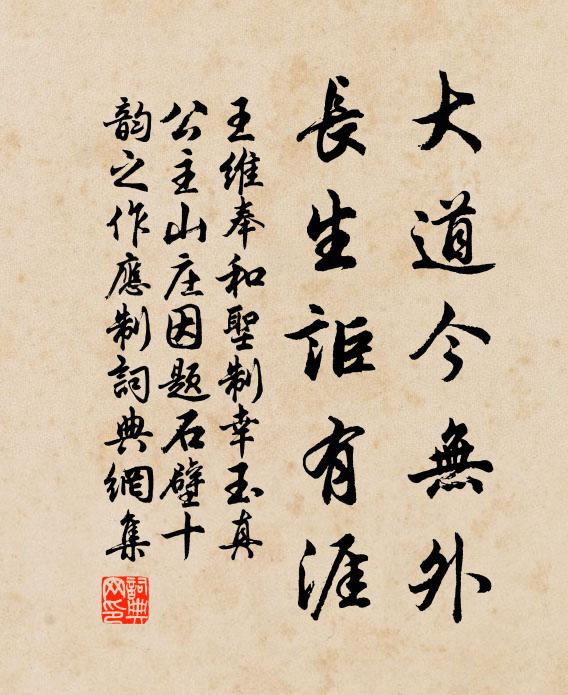 大道今無外
長生詎有涯
王維奉和聖制幸玉真
公主山庄因題石壁十
韵之作應制詞典網集
詞典
网印